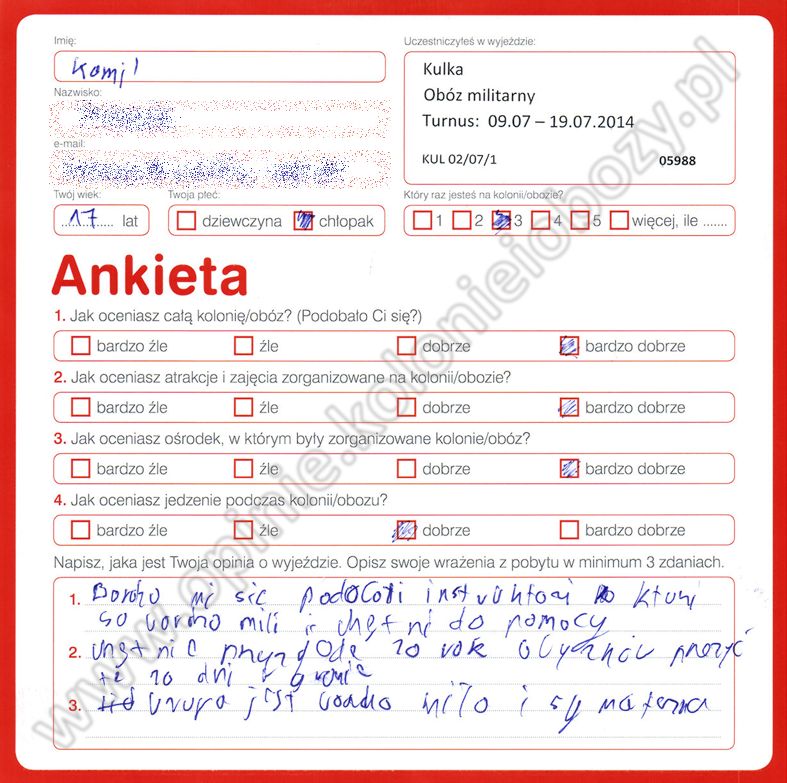 Imię:
Kamil
Nazwisko:
e-mail:
Twój wiek:
17 lat
Twoja płeć:
dziewczyna
chłopak
Uczestniczyłeś w wyjeździe:
Kulka
Obóz militarny
Turnus: 09.07 – 19.07.2014
KUL 02/07/1 05988
Który raz jesteś na kolonii/obozie?
1 2 3 4 5 więcej, ile .......
Ankieta
1. Jak oceniasz całą kolonię/obóz? (Podobało Ci się?)
bardzo źle źle dobrze bardzo dobrze
2. Jak oceniasz atrakcje i zajęcia zorganizowane na kolonii/obozie?
bardzo źle źle dobrze bardzo dobrze
3. Jak oceniasz ośrodek, w którym były zorganizowane kolonie/obóz?
bardzo źle źle dobrze bardzo dobrze
4. Jak oceniasz jedzenie podczas kolonii/obozu?
bardzo źle źle dobrze bardzo dobrze
Napisz, jaka jest Twoja opinia o wyjeździe. Opisz swoje wrażenia z pobytu w minimum 3 zdaniach.
1. Bardzo mi się podobali instruktorzy którzy
są bardzo mili i chętni do pomocy
2. chętnie przyjadę za rok
te 10 dni
3. jest bardzo miło i
www.opinie.kolonieiobozy.pl